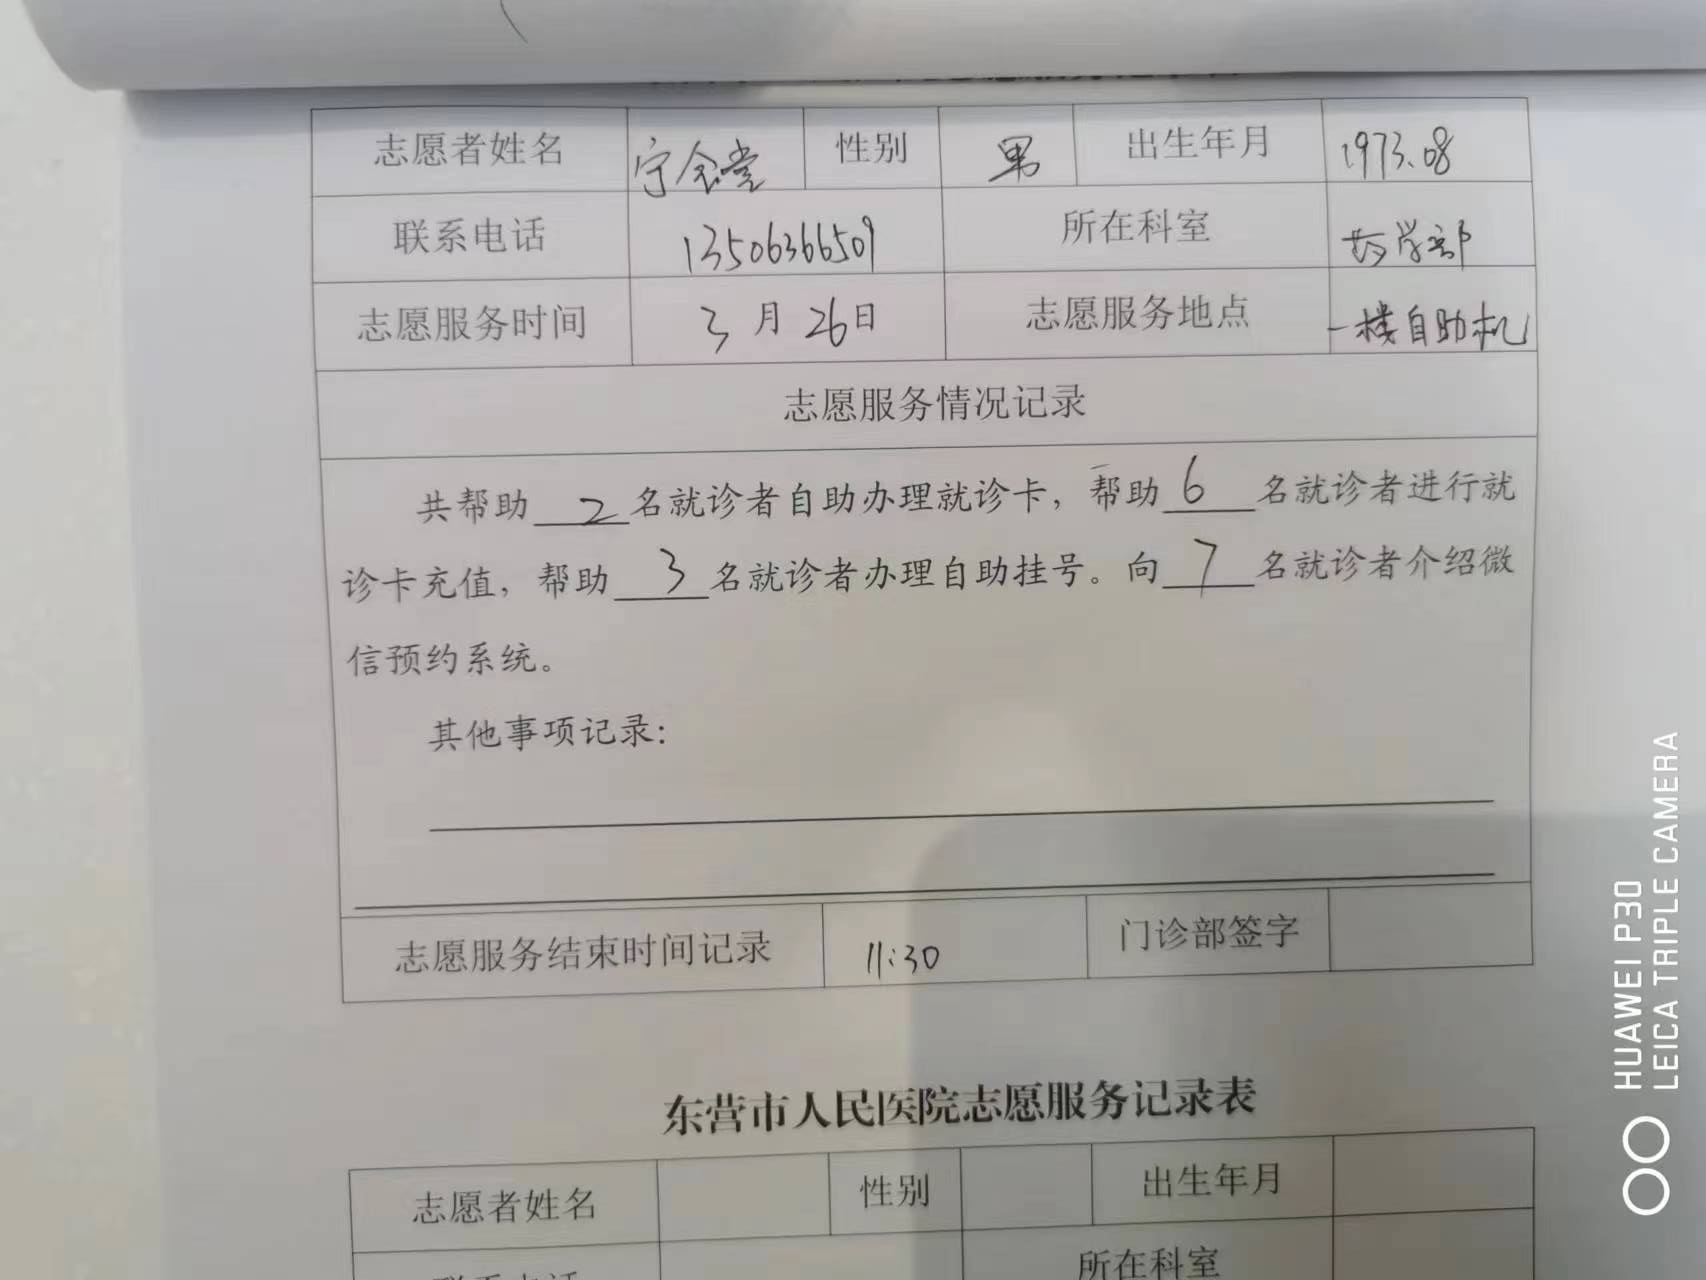 志愿者姓名 宁念堂 性别 男 出生年月 1973.08
联系电话 13506366509 所在科室 药学部
志愿服务时间 3月26日 志愿服务地点 一楼自助机
志愿服务情况记录
共帮助2名就诊者自助办理就诊卡，帮助6名就诊者进行就
诊卡充值，帮助3名就诊者办理自助挂号。向7名就诊者介绍微
信预约系统。
其他事项记录：
志愿服务结束时间记录 11:30 门诊部签字
东营市人民医院志愿服务记录表
志愿者姓名 性别 出生年月
联系电话 所在科室
HUAWEI P30
LEICA TRIPLE CAMERA